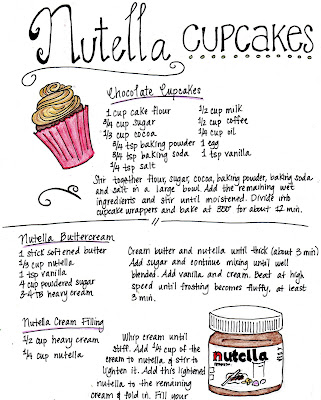 Nutella CUPCAKES
Chocolate Cupcakes
1 cup cake flour
3/4 cup sugar
1/3 cup cocoa
3/4 tsp baking powder
3/4 tsp baking soda
1/4 tsp salt
1/2 cup milk
1/2 cup coffee
1/4 cup oil
1 egg
1 tsp vanilla
Stir together flour, sugar, cocoa, baking powder, baking soda
and salt in a large bowl. Add the remaining wet
ingredients and stir until moistened. Divide into
cupcake wrappers and bake at 350° for about 12 min.
Nutella Buttercream
1 stick softened butter
cup nutella
1 tsp vanilla
4 cup powdered sugar
3-4 TB heavy cream
Cream butter and nutella until thick (about 3 min)
Add sugar and continue mixing until well
blended. Add vanilla and cream. Beat at high
speed until frosting becomes fluffy, at least
3 min.
Nutella Cream Filling
1/2 cup heavy cream
1/4 cup nutella
Whip cream until
stiff. Add 1/4 cup of the
cream to nutella & stir to
lighten it. Add this lightened
nutella to the remaining
cream & fold in. Fill your
nutella